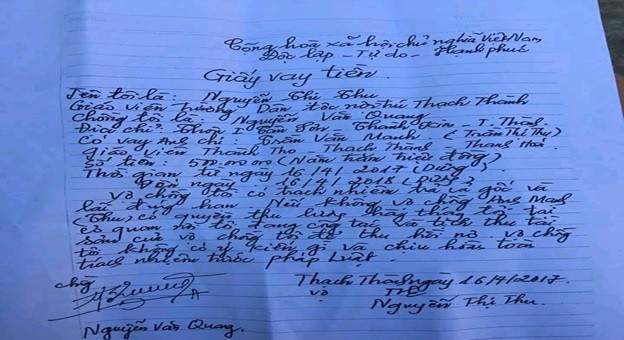 Cộng hoà xã hội chủ nghĩa Việt Nam
Độc lập - Tự do - Hạnh phúc
Giấy vay tiền.
Tên tôi là: Nguyễn Thị Thu
Giáo viên trường: Dân tộc nội trú Thạch Thành
Chồng tôi là: Nguyễn Văn Quang
Địa chỉ: Thôn 1 Tân Sơn - Thành Kim - T. Thành.
Có vay Anh chị: Trần Văn Mạnh (Trần Thị Thu)
giáo viên Thành Thọ Thạch Thành Thanh Hoá.
Số tiền: 500.000.000 (Năm trăm triệu đồng)
Thời gian từ ngày 16/4/2017 (Dương)
Đến ngày 16/4/2018 (Dương)
Vợ chồng tôi có trách nhiệm trả cả gốc và
lãi đúng hạn Nếu không vợ chồng Anh Mạnh
(Thu) có quyền thu lương hàng tháng tôi tại
cơ quan nơi tôi đang công tác và tịch thu tài
sản của vợ chồng tôi để thu hồi nợ. Vợ chồng
tôi không có ý kiến gì và chịu hoàn toàn
trách nhiệm trước pháp luật.
Thạch Thành ngày 16/4/2017.
chồng
vợ
Thu
Nguyễn Thị Thu.
Nguyễn Văn Quang.